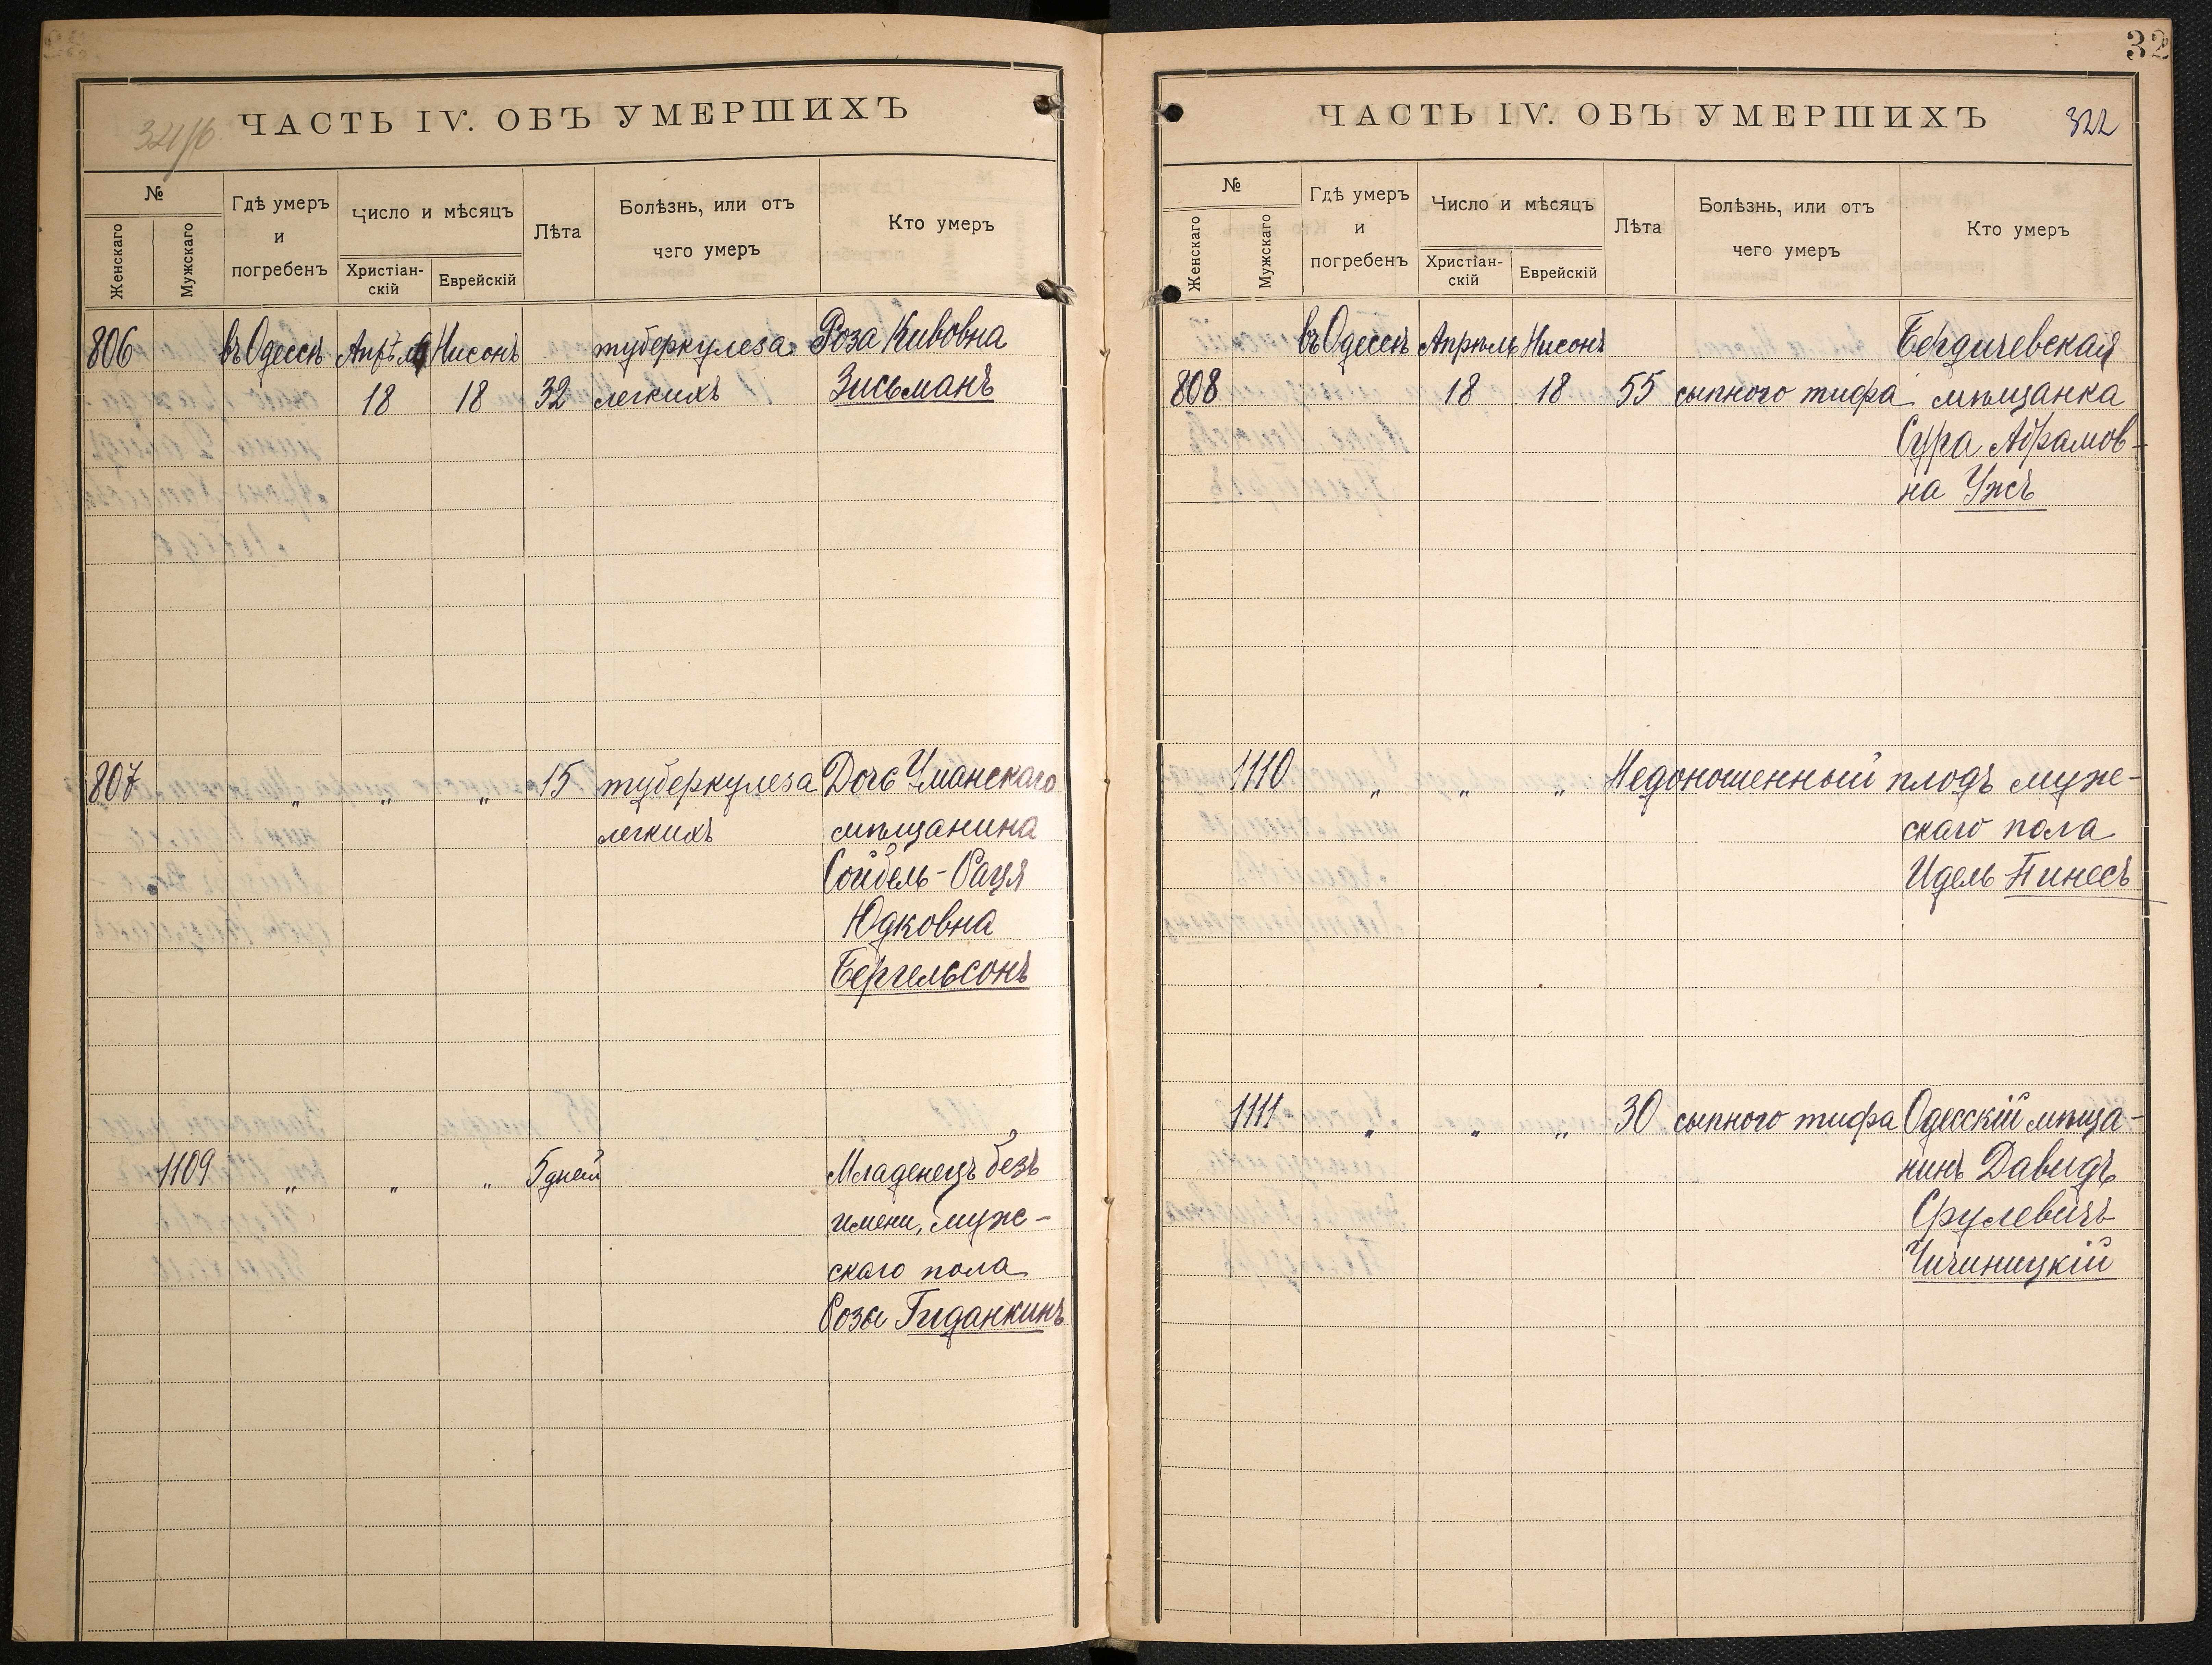 321/б
ЧАСТЬ IV. ОБЪ УМЕРШИХЪ
№
Женскаго
Мужскаго
Гдѣ умеръ
и
погребенъ
Число и мѣсяцъ
Христіан-
скій
Еврейскій
Лѣта
Болѣзнь, или отъ
чего умеръ
Кто умеръ
806 въ Одессѣ Апрѣля Нисонъ туберкулеза Роза Кивовна
18 18 32 легкихъ Зисьманъ
807 " " " 15 туберкулеза Дочь Уманскаго
легкихъ мѣщанина
Сойбель-Рація
Юдковна
Бергельсонъ
1109 " " " 5 дней Младенецъ безъ
имени, муж-
скаго пола
Розы Гиданкинъ
32
ЧАСТЬ IV. ОБЪ УМЕРШИХЪ 322
№
Женскаго
Мужскаго
Гдѣ умеръ
и
погребенъ
Число и мѣсяцъ
Христіан-
скій
Еврейскій
Лѣта
Болѣзнь, или отъ
чего умеръ
Кто умеръ
въ Одессѣ Апрѣль Нисонъ Бердичевская
808 18 18 55 сыпного тифа мѣщанка
Сура Абрамов-
на Ужъ
1110 " " " Недоношенный плодъ муж-
скаго пола
Идель Пинесъ
1111 " " " 30 сыпного тифа Одесскій мѣща-
нинъ Давидъ
Срулевичъ
Чичиницкій